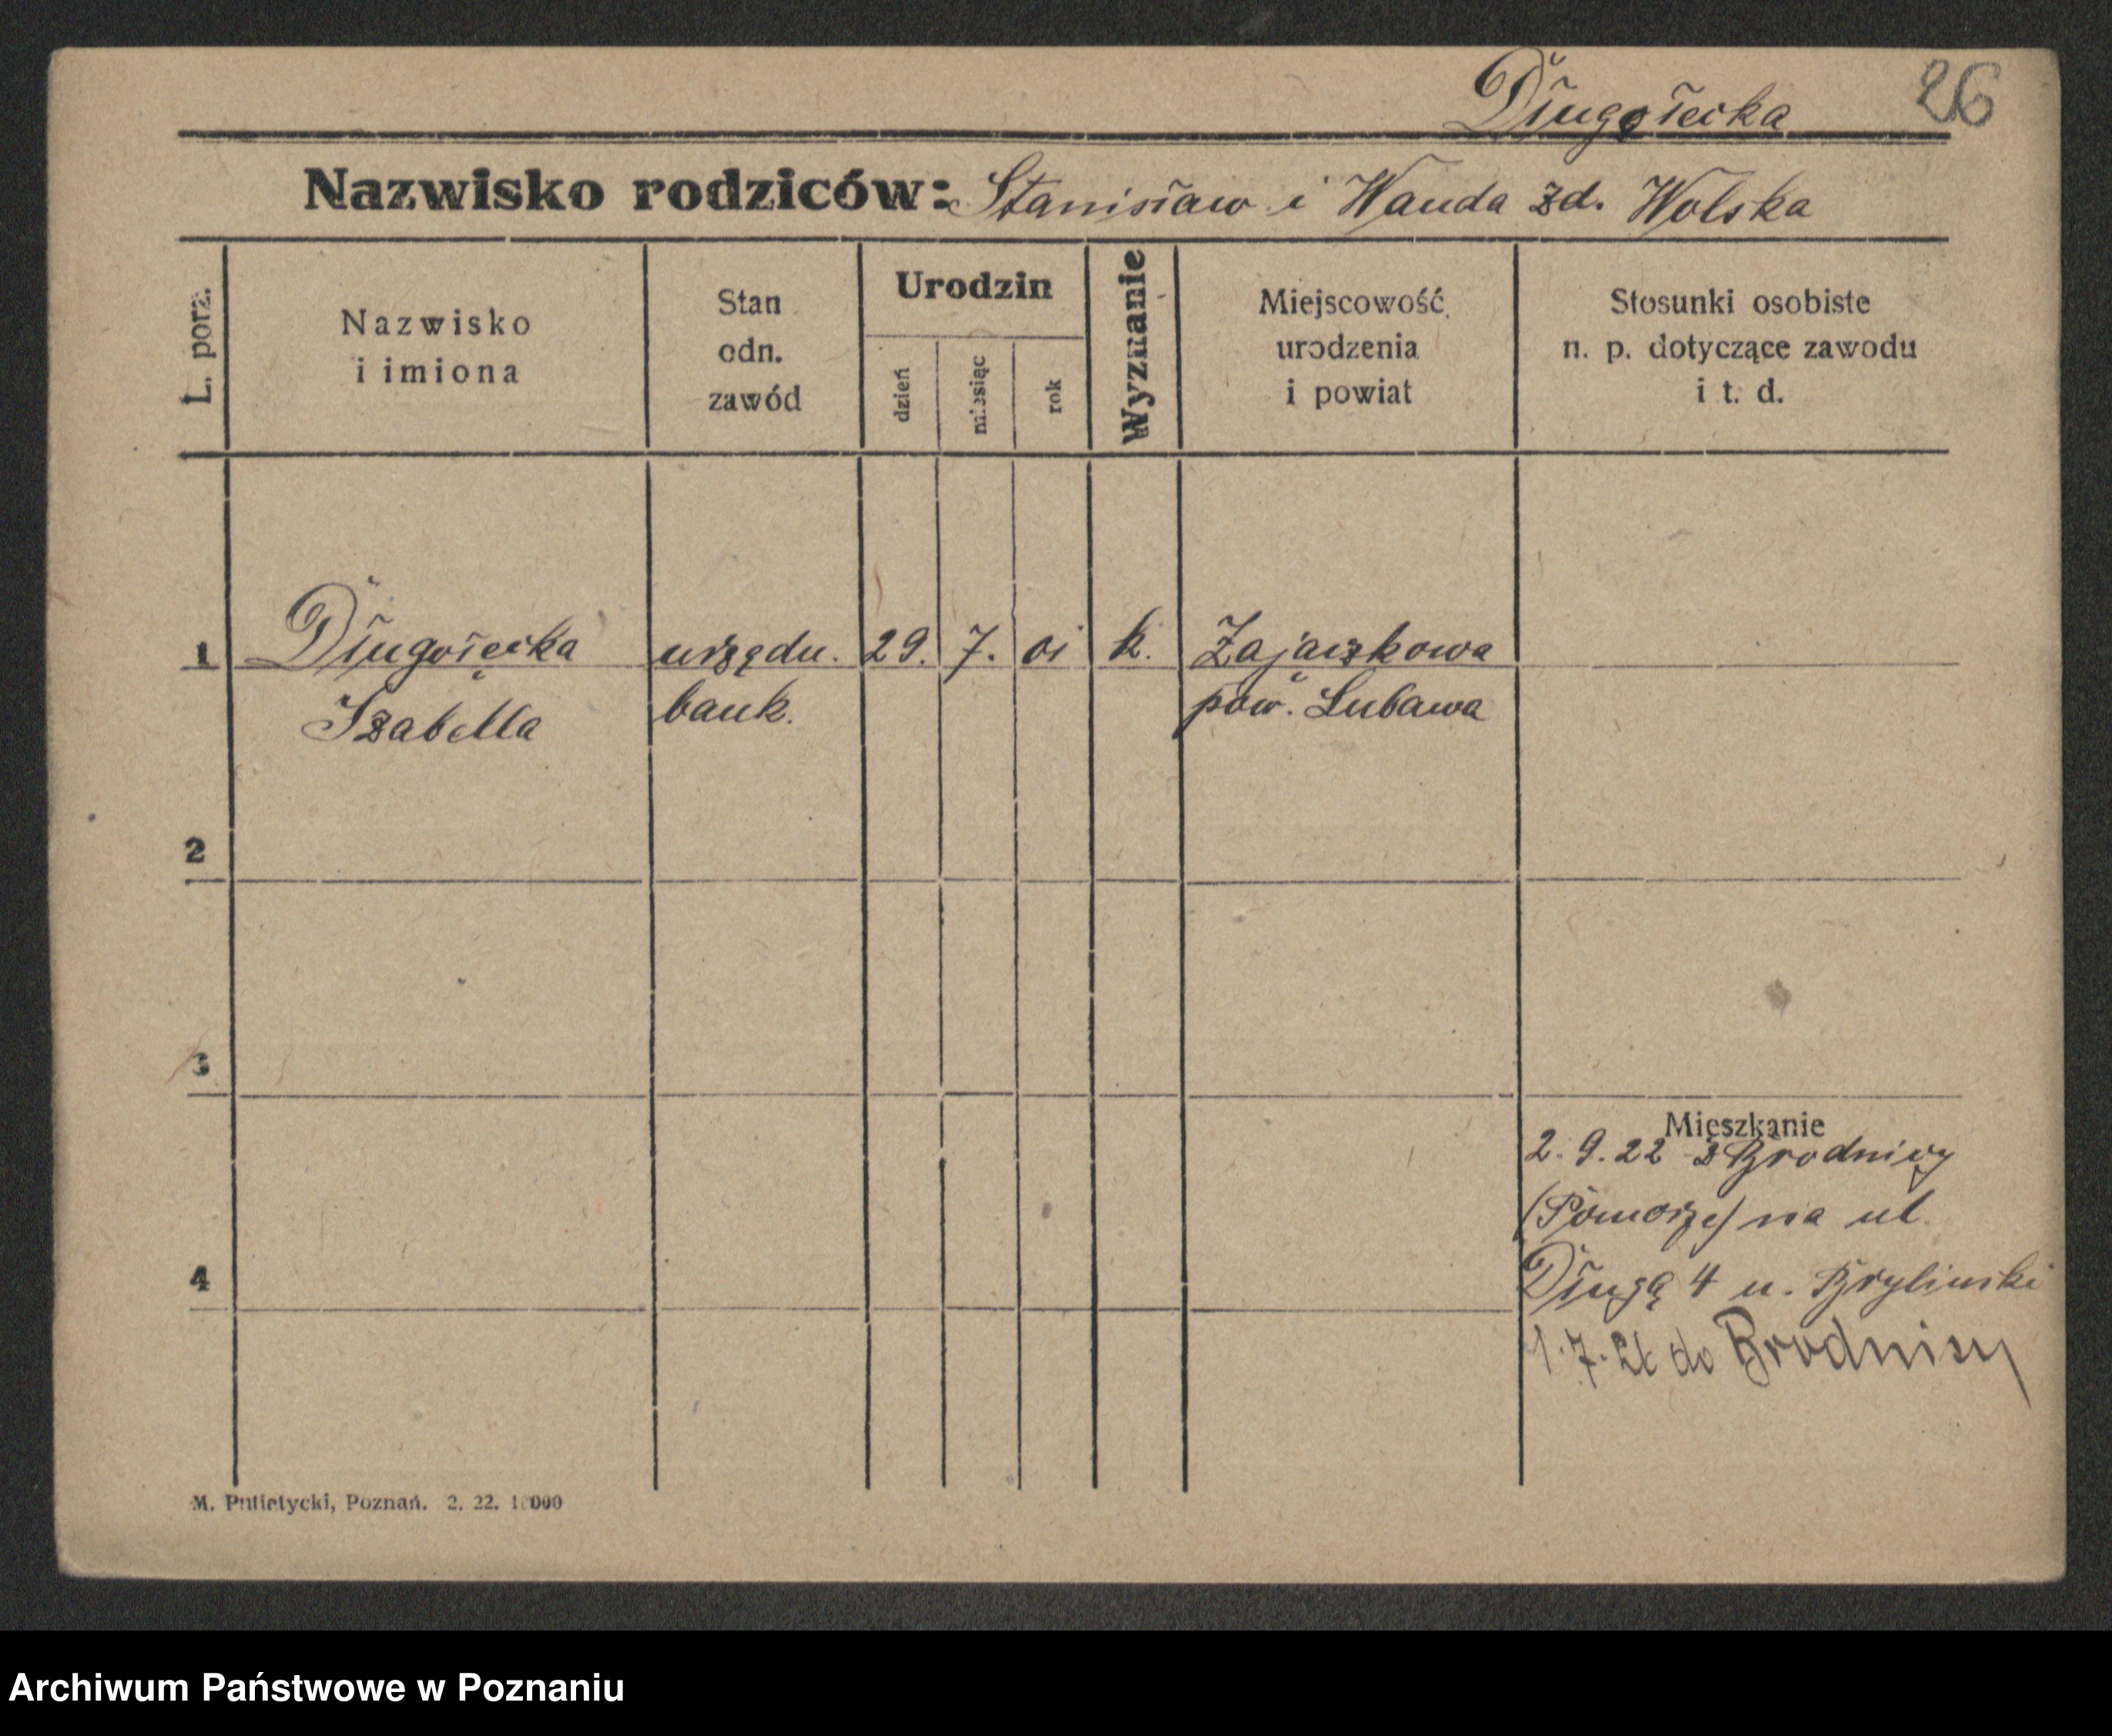 Długołęcka 26
Nazwisko rodziców: Stanisław i Wanda zd. Wolska
L. porz.
Nazwisko
i imiona
Stan
odn.
zawód
Urodzin
dzień
miesiąc
rok
Wyznanie
Miejscowość
urodzenia
i powiat
Stosunki osobiste
n. p. dotyczące zawodu
i t. d.
1 Długołęcka urzędn. 29. 7. 01 k. Zajączkowa
Izabella bank. pow. Lubawa
2
3
Mieszkanie
2. 9. 22 z Brodnicy
(Pomorze) na ul.
4
Długą 4 u. Brylinski
1. 7. do Brodnicy
M. Putiatycki, Poznań. 2. 22.
Archiwum Państwowe w Poznaniu